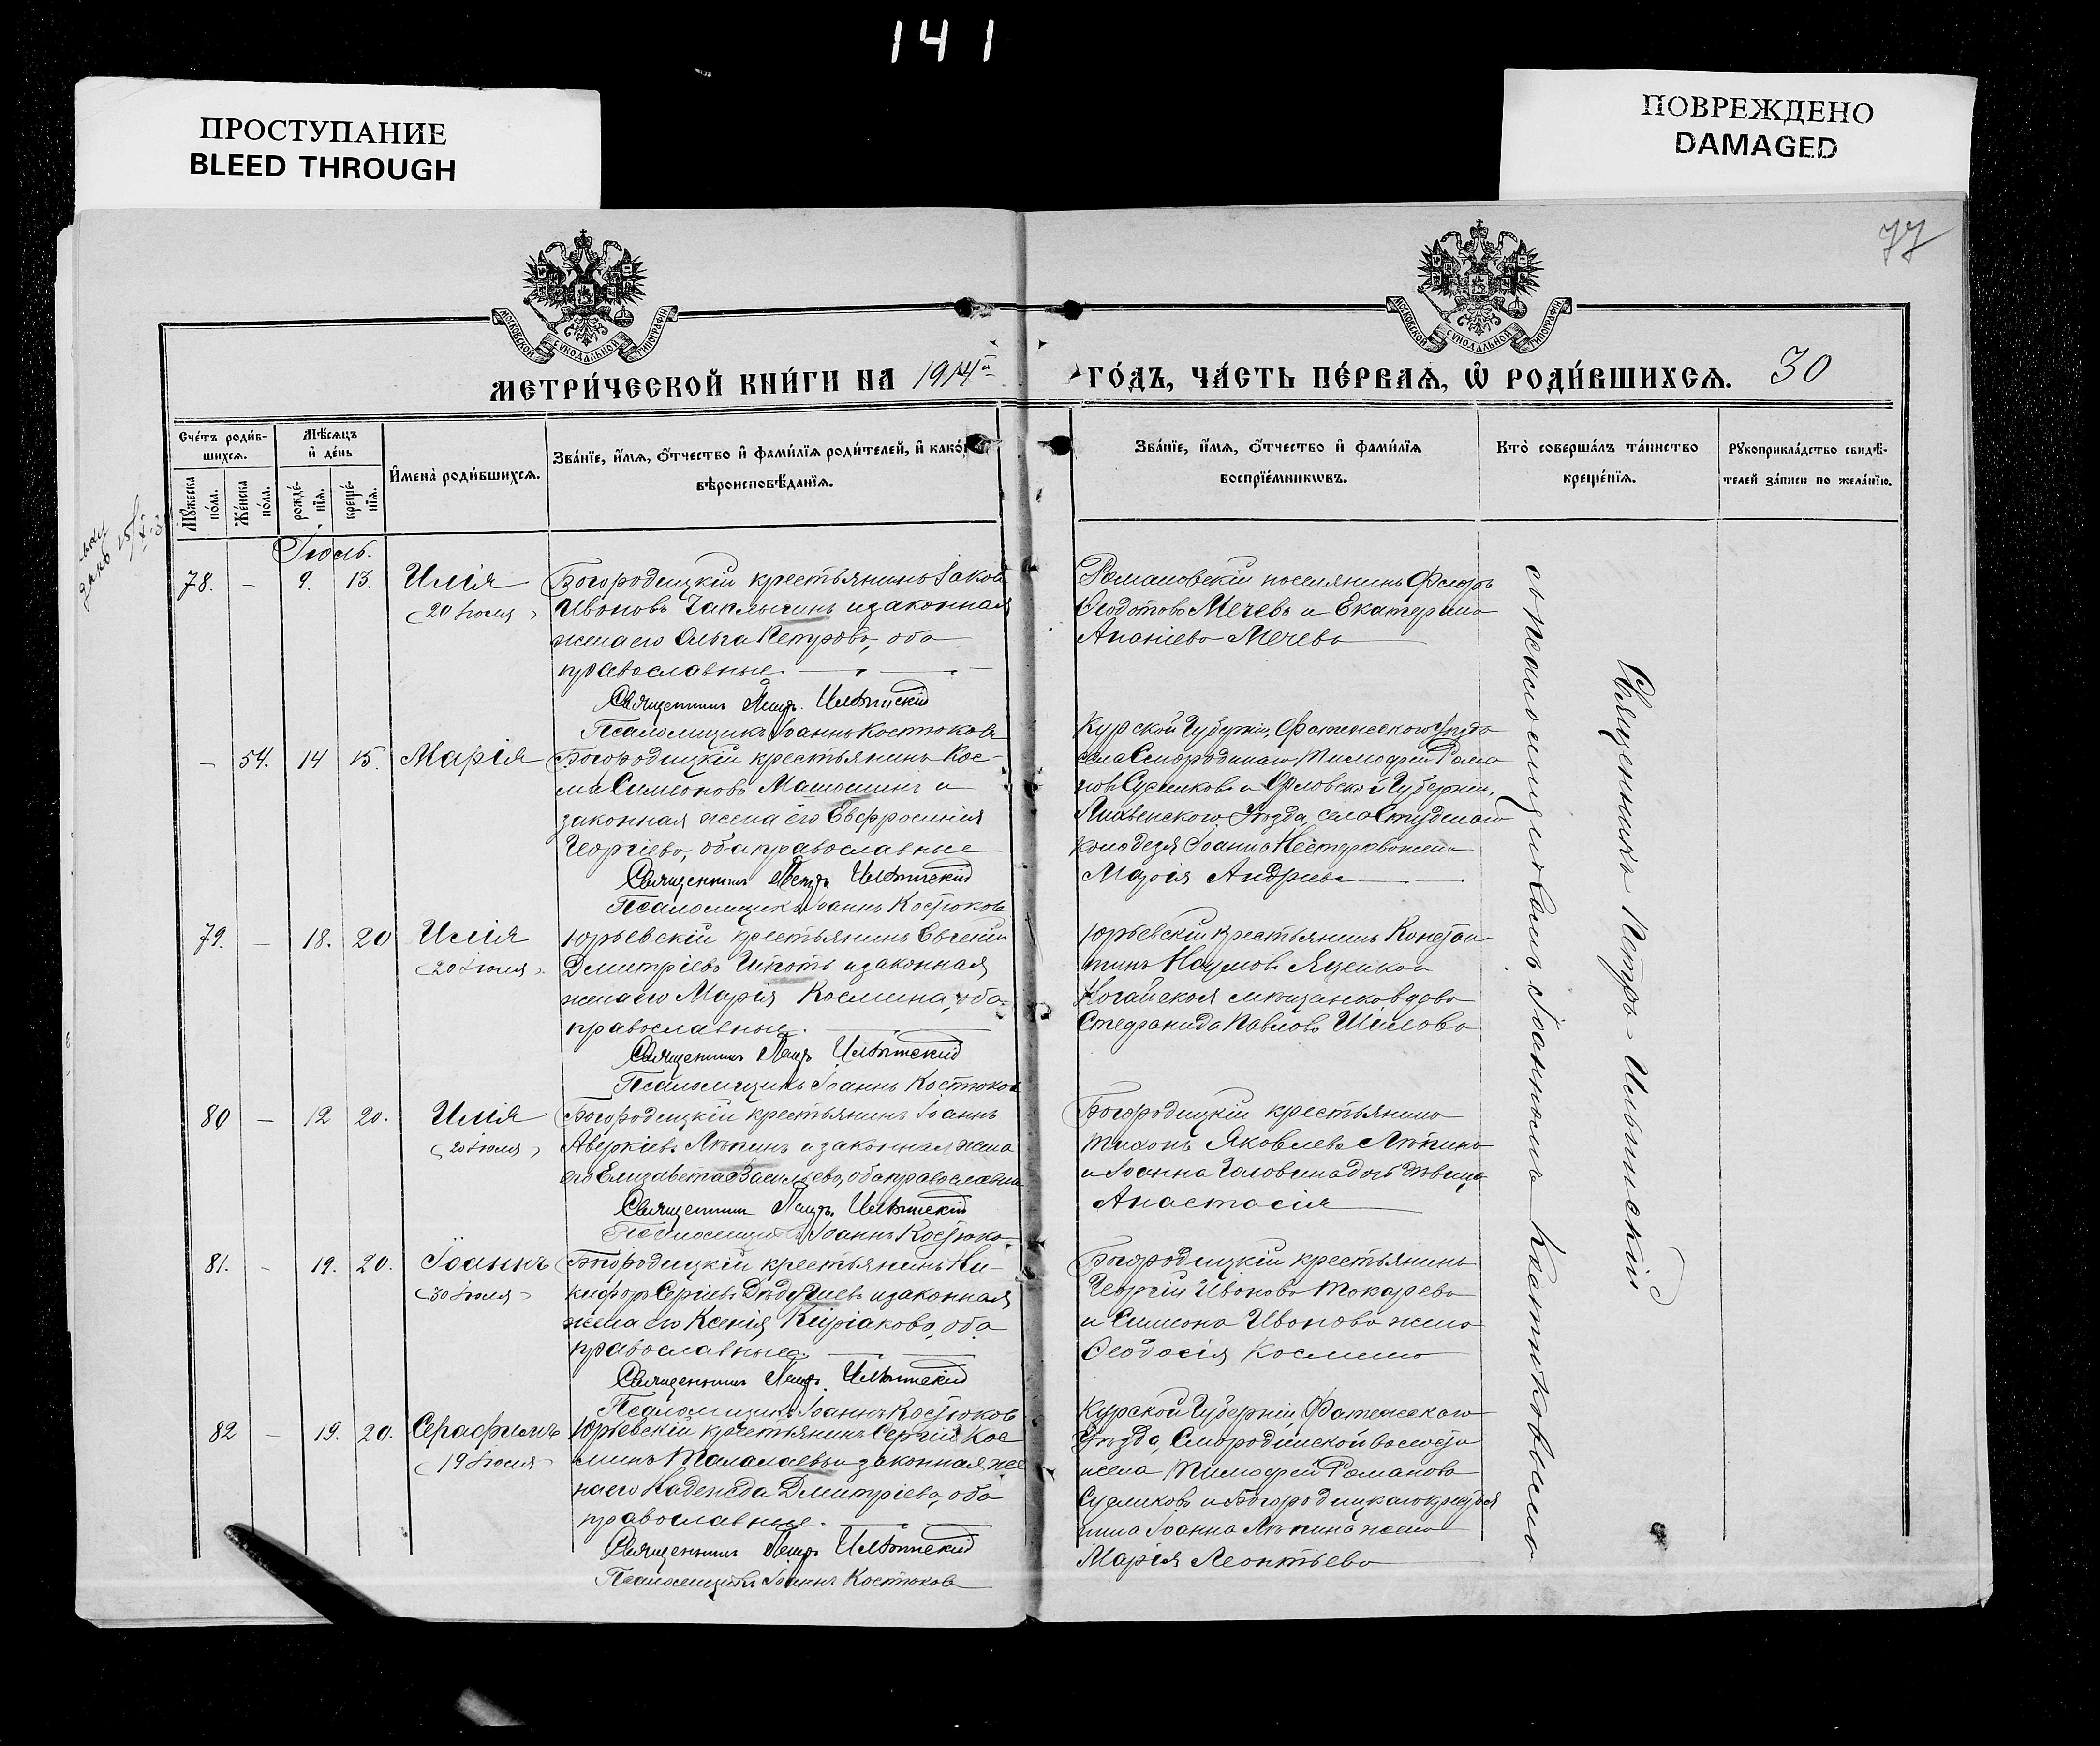 141
ПРОСТУПАНИЕ
BLEED THROUGH
ПОВРЕЖДЕНО
DAMAGED
77
МОСКОВСКОЙ СѴНОДАЛЬНОЙ ТИПОГРАФІИ
МОСКОВСКОЙ СѴНОДАЛЬНОЙ ТИПОГРАФІИ
МЕТРИ́ЧЕСКОЙ КНИ́ГИ НА 1914й
ГО́ДЪ, ЧА́СТЬ ПЕ́РВАѦ, Ѡ РОДИ́ВШИХСѦ. 30
Сче́тъ роди́в-
шихсѧ.
Мѣ́сѧцъ
и де́нь
Мꙋ́жеска
по́ла.
Же́нска
по́ла.
рожде́-
нїѧ.
креще́-
нїѧ.
И҆мена̀ роди́вшихсѧ.
Зва́нїе, и҆́мѧ, ѻ҆́тчество и҆ фами́лїѧ роди́телей, и҆ како́гѡ
вѣроисповѣ́данїѧ.
Зва́нїе, и҆́мѧ, ѻ҆́тчество и҆ фами́лїѧ
воспрїе́мникѡвъ.
Кто̀ соверша́лъ та́инство
креще́нїѧ.
Рꙋкоприкла́дство свидѣ́-
телей за́писи по жела́нїю.
Іюль.
78. – 9. 13. Илія
(20 Іюля)
Богородицкій крестьянинъ Іаковъ
Ивановъ Чаплыгинъ и законная
жена его Ольга Петрова, оба
православные.
Священникъ Петръ Ильинскій
Псаломщикъ Іоаннъ Костюковъ
Романовскій поселянинъ Феодоръ
Ѳеодотовъ Мечевъ и Екатерина
Ананіева Мечева
– 54. 14 15. Марія
Богородицкій крестьянинъ Кос-
ма Симеоновъ Машошинъ и
законная жена его Евфросинія
Георгіева, оба православные
Священникъ Петръ Ильинскій
Псаломщикъ Іоаннъ Костюковъ
Курской Губерніи, Фатежскаго Уѣзда
села Смородинаго Тимофей Рома
новъ Сусликовъ и Орловской Губерніи,
Ливенскаго Уѣзда, села Студенаго
колодезя Іоанна Нестерова жена
Марія Андреева
79. – 18. 20 Илія
(20 Іюля)
Юрьевскій крестьянинъ Евгеній
Дмитріевъ и законная
жена его Марія Космина, оба
православные.
Священникъ Петръ Ильинскій
Псаломщикъ Іоаннъ Костюковъ
Юрьевскій крестьянинъ Констан
тинъ Наумовъ Яценко и
Ногайская мѣщанка вдова
Стефанида Павлова Шилова
80 – 12 20. Илія
(20 Іюля)
Богородицкій крестьянинъ Іоаннъ
Аверкіевъ Лѣпинъ и законная жена
его Елизавета Васильева, оба православные
Священникъ Петръ Ильинскій
Псаломщикъ Іоаннъ Костюковъ
Богородицкій крестьянинъ
Тихонъ Яковлевъ Лѣпинъ
и Іоанна Головина дочь дѣвица
Анастасія
81. – 19. 20. Іоаннъ
(30 Іюля)
Богородицкій крестьянинъ Ни-
кифоръ Сергіевъ и законная
жена его Ксенія Киріакова, оба
православные.
Священникъ Петръ Ильинскій
Псаломщикъ Іоаннъ Костюковъ
Богородицкій крестьянинъ
Георгій Ивановъ Токаревъ
и Симеона Иванова жена
Ѳеодосія Космина
82 – 19. 20. Серафимъ
(19 Іюля)
Юрьевскій крестьянинъ Сергій Кос
минъ Талалаевъ и законная же
на его Надежда Дмитріева, оба
православные.
Священникъ Петръ Ильинскій
Псаломщикъ Іоаннъ Костюковъ
Курской Губерніи, Фатежскаго
Уѣзда, Смородинской волости
села Тимофей Романовъ
Сусликовъ и Богородицкаго крестья
нина Іоанна Лѣпина жена
Марія Леонтьева
Священникъ Петръ Ильинскій
съ псаломщикомъ Іоанномъ Костюковымъ